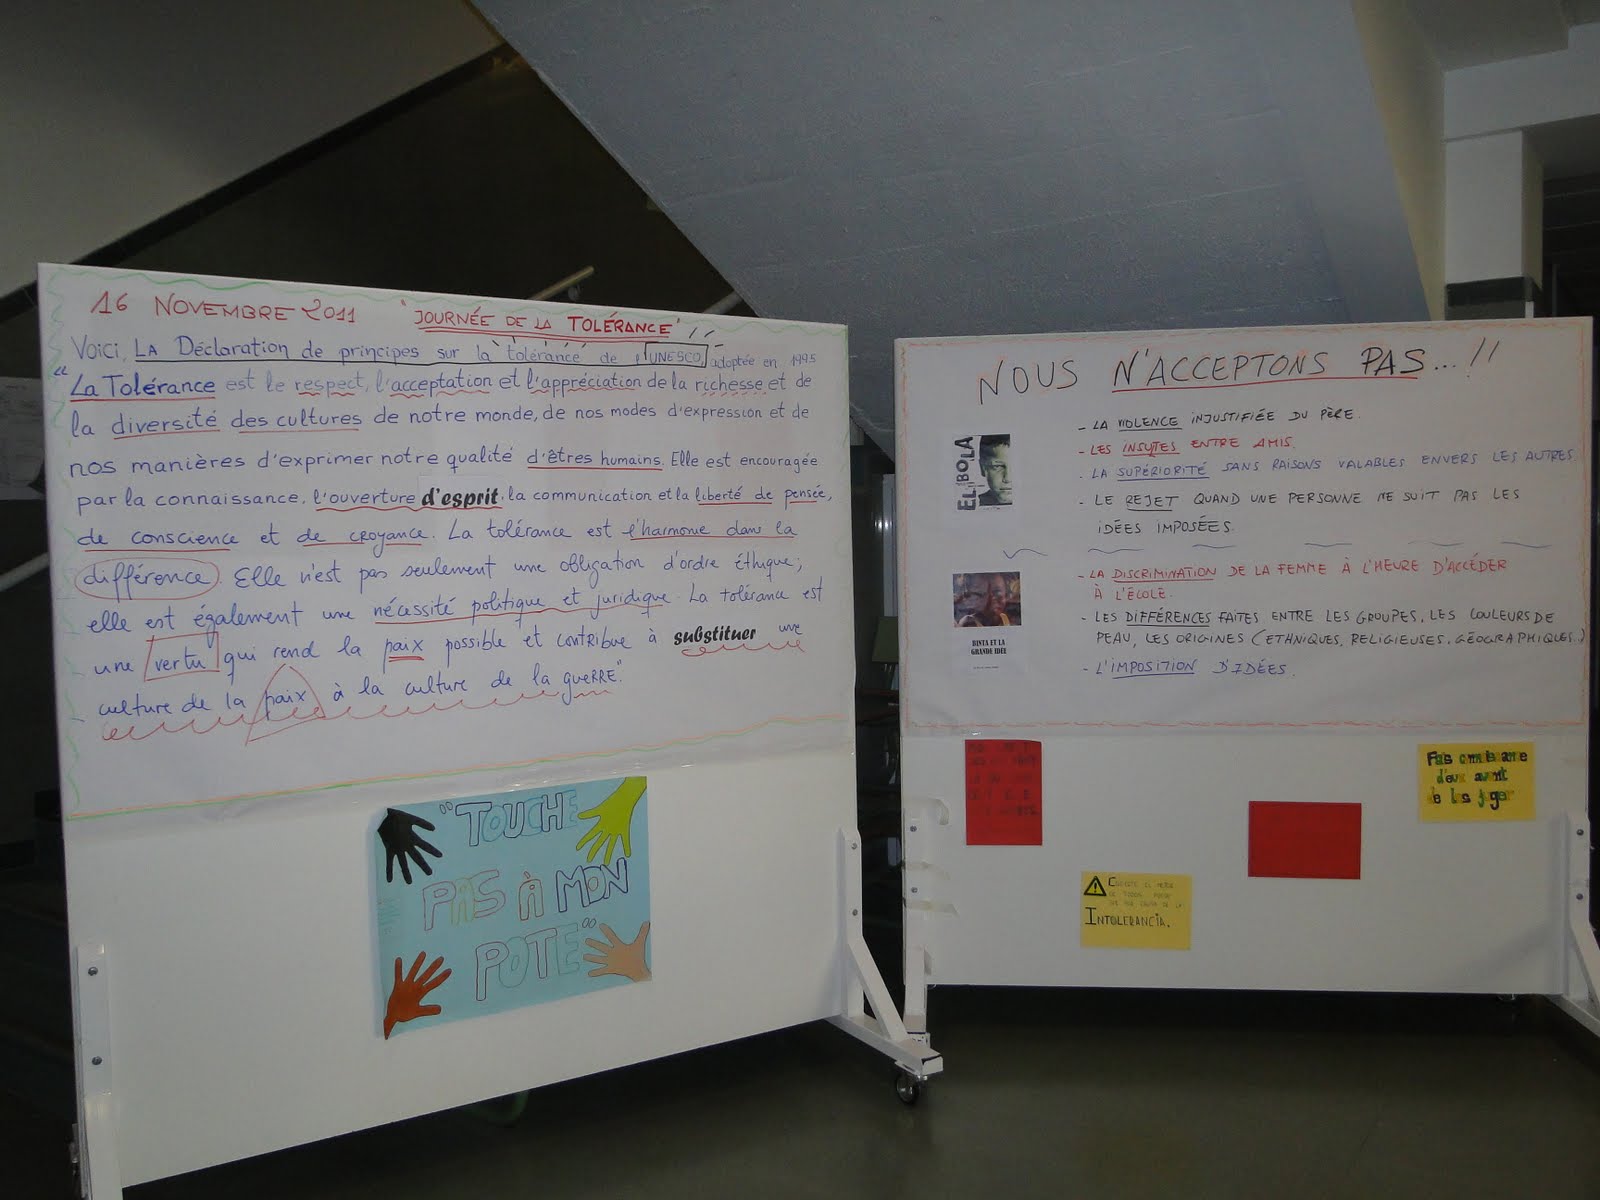 16 NOVEMBRE 2011 "JOURNÉE DE LA TOLÉRANCE"
Voici, LA Déclaration de principes sur la tolérance de l'UNESCO, adoptée en 1995
"La Tolérance est le respect, l'acceptation et l'appréciation de la richesse et de
la diversité des cultures de notre monde, de nos modes d'expression et de
nos manières d'exprimer notre qualité d'êtres humains. Elle est encouragée
par la connaissance, l'ouverture d'esprit, la communication et la liberté de pensée,
de conscience et de croyance. La tolérance est l'harmonie dans la
différence. Elle n'est pas seulement une obligation d'ordre éthique;
elle est également une nécessité politique et juridique. La tolérance est
une vertu qui rend la paix possible et contribue à substituer une
culture de la paix à la culture de la guerre."
"TOUCHE
PAS À MON
POTE"
NOUS N'ACCEPTONS PAS...!!
- LA VIOLENCE INJUSTIFIÉE DU PÈRE.
- LES INSULTES ENTRE AMIS.
- LA SUPÉRIORITÉ SANS RAISONS VALABLES ENVERS LES AUTRES
- LE REJET QUAND UNE PERSONNE NE SUIT PAS LES
IDÉES IMPOSÉES.
EL BOLA
- LA DISCRIMINATION DE LA FEMME À L'HEURE D'ACCÉDER
À L'ÉCOLE.
- LES DIFFÉRENCES FAITES ENTRE LES GROUPES, LES COULEURS DE
PEAU, LES ORIGINES (ETHNIQUES, RELIGIEUSES, GÉOGRAPHIQUES)
- L'IMPOSITION D'IDÉES.
BINTA ET LA
GRANDE IDÉE
Fais connaissance
d'eux avant
de les juger
INTOLERANCIA.